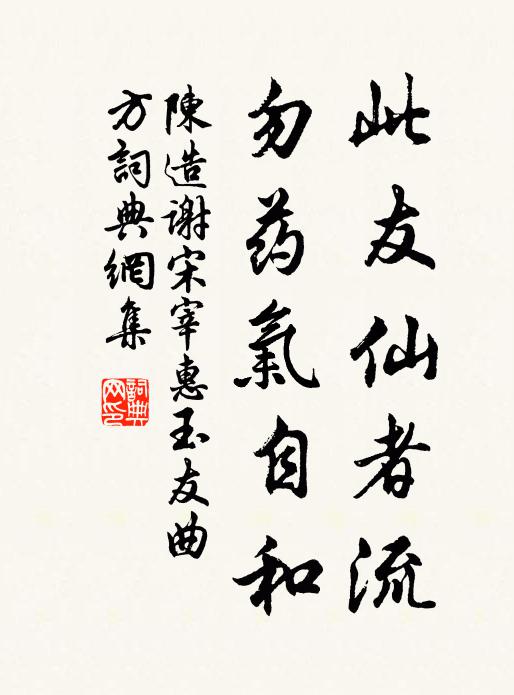 此友仙者流
勿药氣自和
陳造谢宋宰惠玉友曲
方詞典網集
詞典
网印